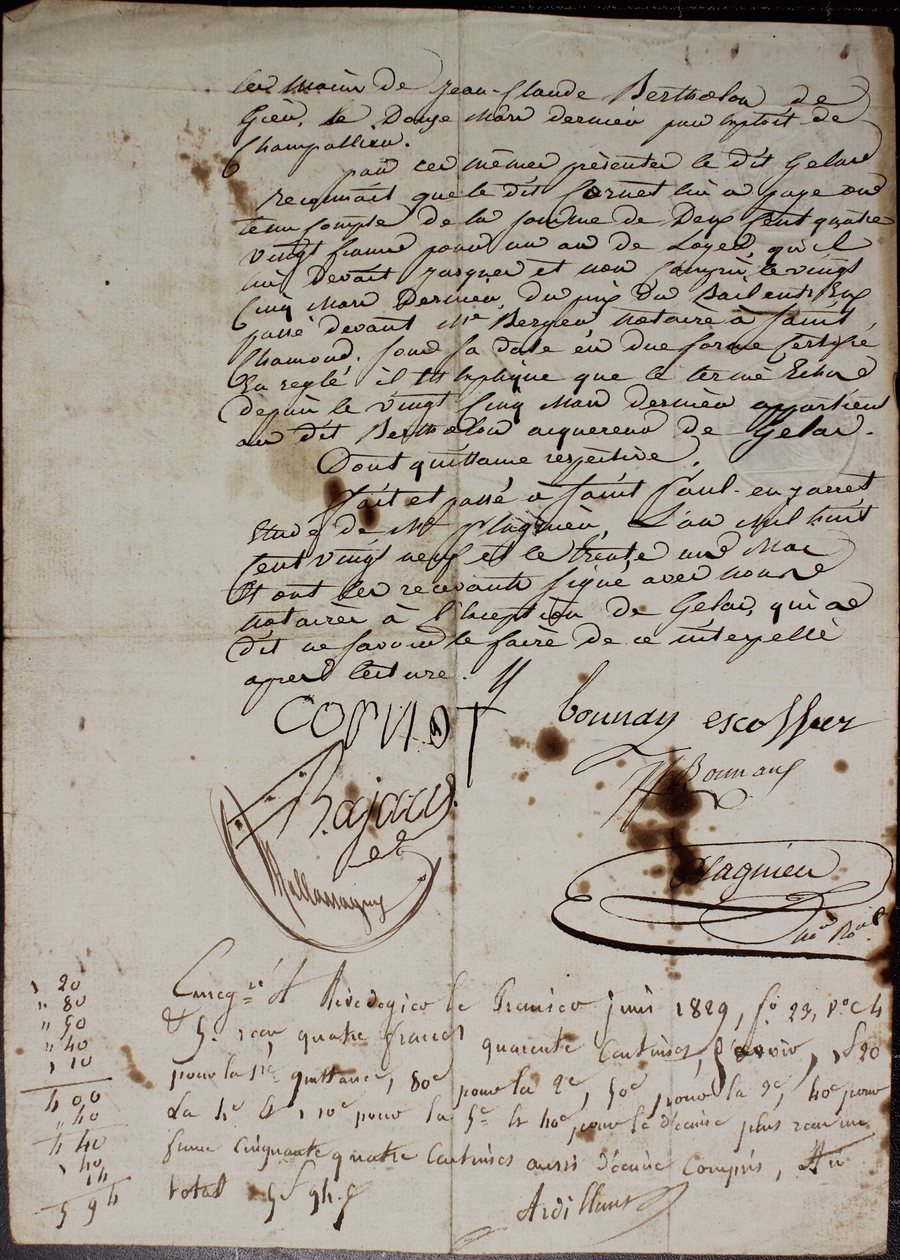 les mains de Jean-Claude Bertholon de
Gien, le Douze Mars dernier par exploit de
Champallion.
par ces mêmes présentes le dit Gelas
reconnait que le dit Cornet lui a payé ou
tenu Compte de la somme de Deux Cent quatre
vingt francs pour un an de Loyer, qu'il
lui Devait jusques et non Compris, le vingt
Cinq Mars Dernier, du prix du Bail entr'Eux
passé devant Me Bergeon Notaire à Saint
Chamond. sous sa date en due forme Certifié
la reglé il Explique que le terme Echu
depuis le vingt Cinq Mars dernier appartient
au dit Bertholon acquereur de Gelas.
Dont quittance respective.
fait et passé à Saint Paul-en-jarret
Etude de Me Magnien, L'an Mil huit
Cent vingt neuf et le trente un Mai
Et ont les recevants signé avec nous
notaires à l'Exception de Gelas, qui a
dit ne savoir le faire de ce interpellé
après lecture.
CORNET
bonnay escoffier
Bajard
Bonnay
et
Magnien
nore Roal
, 20
" 80
" 50
" 40
, 10
4 00
" 40
4 40
, 40
14
5 94
Enregré A Rivedegier le premier juin 1829, fo 23, Vo C 4
& 5. reçu quatre francs quarante Centimes, Savoir,
pour la 1re quittance, 80c pour la 2e, 50c pour la 3e, 40c pour
La 4e & 10c pour la 5e & 40c pour le décime plus reçu un
franc Cinquante quatre Centimes aussi décime Compris,
total 5f 94.c
Ardillant